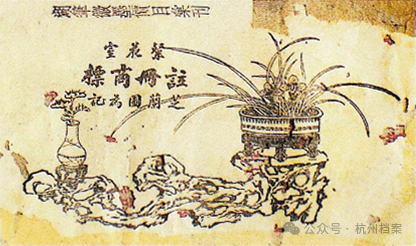 粲花室
註冊商標
芝蘭圖為記
公众号 · 杭州档案